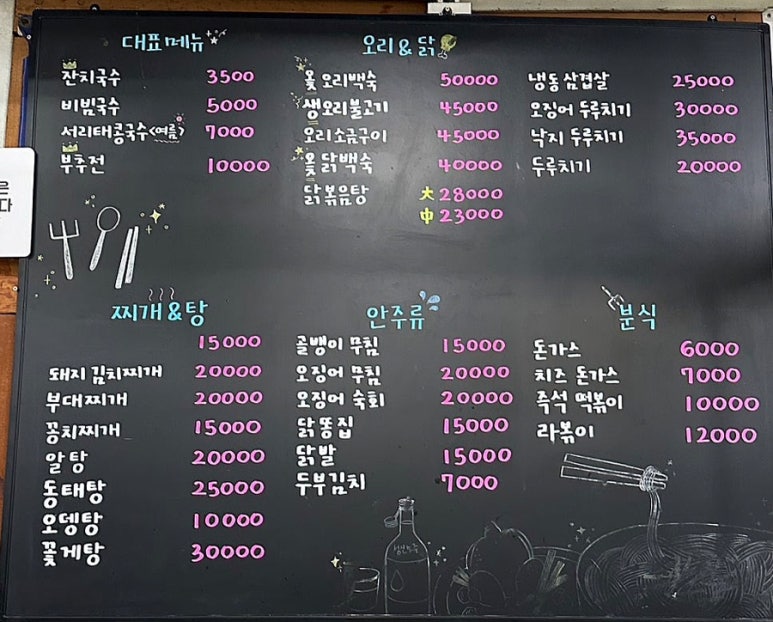 대표메뉴
잔치국수 3500
비빔국수 5000
서리태콩국수<여름> 7000
부추전 10000
오리&닭
옻오리백숙 50000
생오리불고기 45000
오리소금구이 45000
옻닭백숙 40000
닭볶음탕 大 28000
中 23000
냉동삼겹살 25000
오징어 두루치기 30000
낙지 두루치기 35000
두루치기 20000
찌개&탕
15000
돼지김치찌개 20000
부대찌개 20000
꽁치찌개 15000
알탕 20000
동태탕 25000
오뎅탕 10000
꽃게탕 30000
안주류
골뱅이 무침 15000
오징어 무침 20000
오징어 숙회 20000
닭똥집 15000
닭발 15000
두부김치 7000
분식
돈가스 6000
치즈 돈가스 7000
즉석 떡볶이 10000
라볶이 12000
은
다